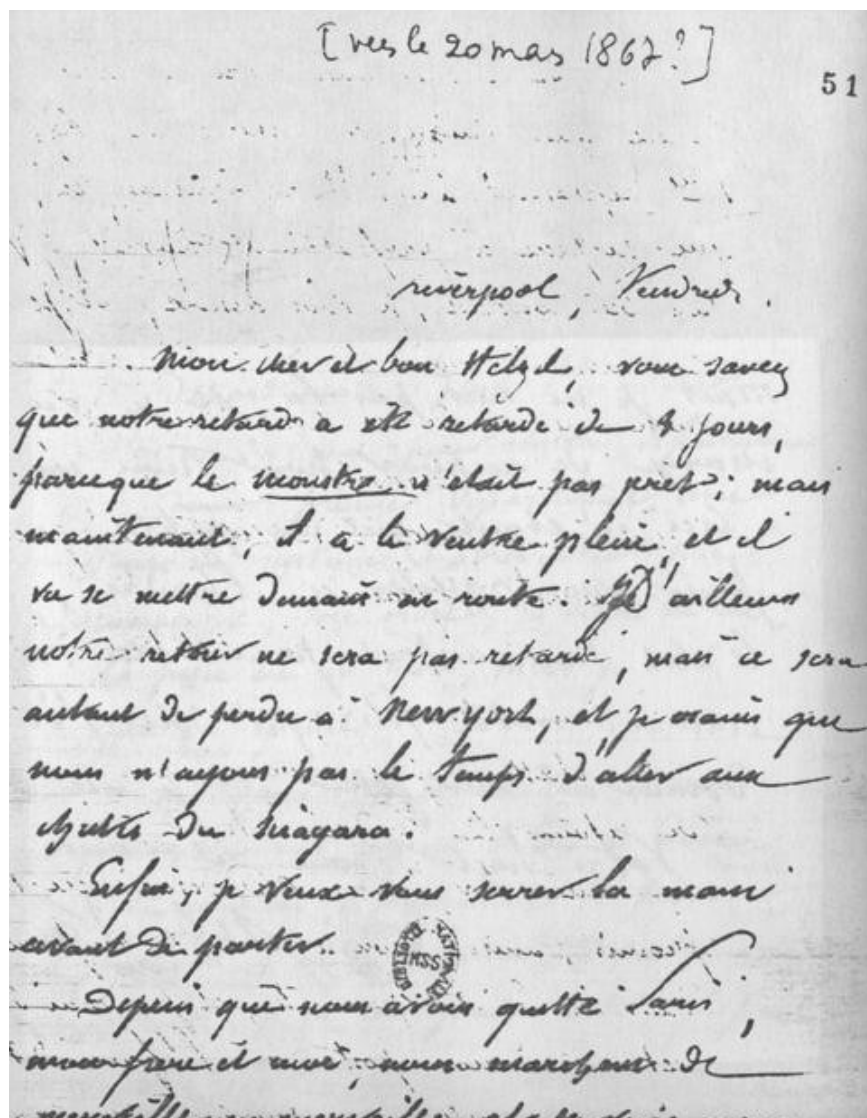 [vers le 20 mars 1867?]
51
Liverpool, Vendredi.
Mon cher et bon Hetzel, vous savez
que notre retard a été retardé de 4 jours,
parceque le monstre n'était pas prêt; mais
maintenant, il a le ventre plein, et il
va se mettre demain en route. D'ailleurs
notre retour ne sera pas retardé, mais ce sera
autant de perdu à New york, et je crains que
nous n'ayons pas le temps d'aller aux
chutes du Niagara.
Enfin, je veux vous serrer la main
avant de partir.
BIBLIOTHÈQUE NATIONALE MSS
Depuis que nous avons quitté Paris,
mon frère et moi, nous marchons de
merveille en merveille